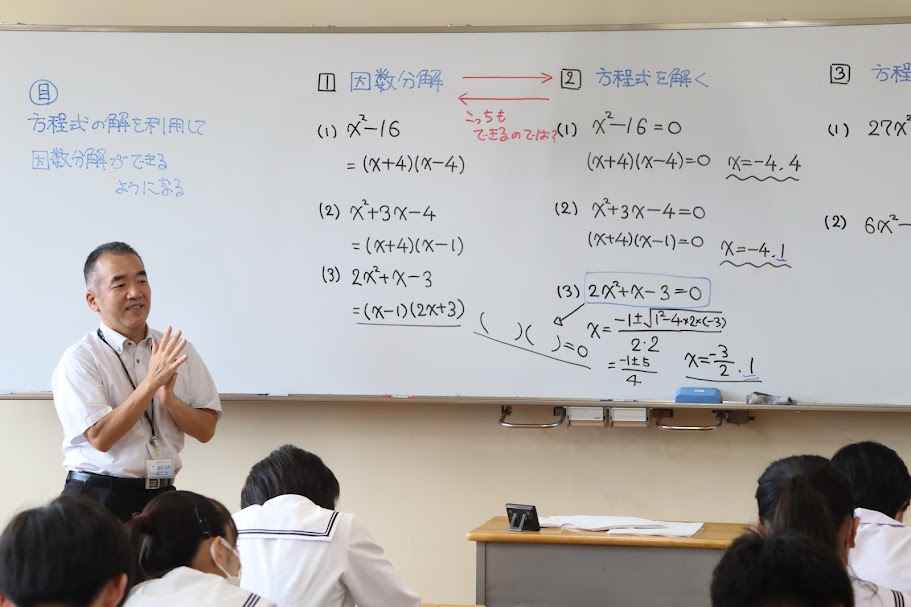 目
方程式の解を利用して
因数分解ができる
ようになる
1 因数分解
(1) x²-16
=(x+4)(x-4)
(2) x²+3x-4
=(x+4)(x-1)
(3) 2x²+x-3
=(x-1)(2x+3)
こっちも
できるのでは?
2 方程式を解く
(1) x²-16=0
(x+4)(x-4)=0 x=-4.4
(2) x²+3x-4=0
(x+4)(x-1)=0 x=-4.1
(3) 2x²+x-3=0
( )( )=0
x=-1±√1²-4×2×(-3)/2·2
=-1±5/4 x=-3/2.1
3 方程
(1) 27x²
(2) 6x²-